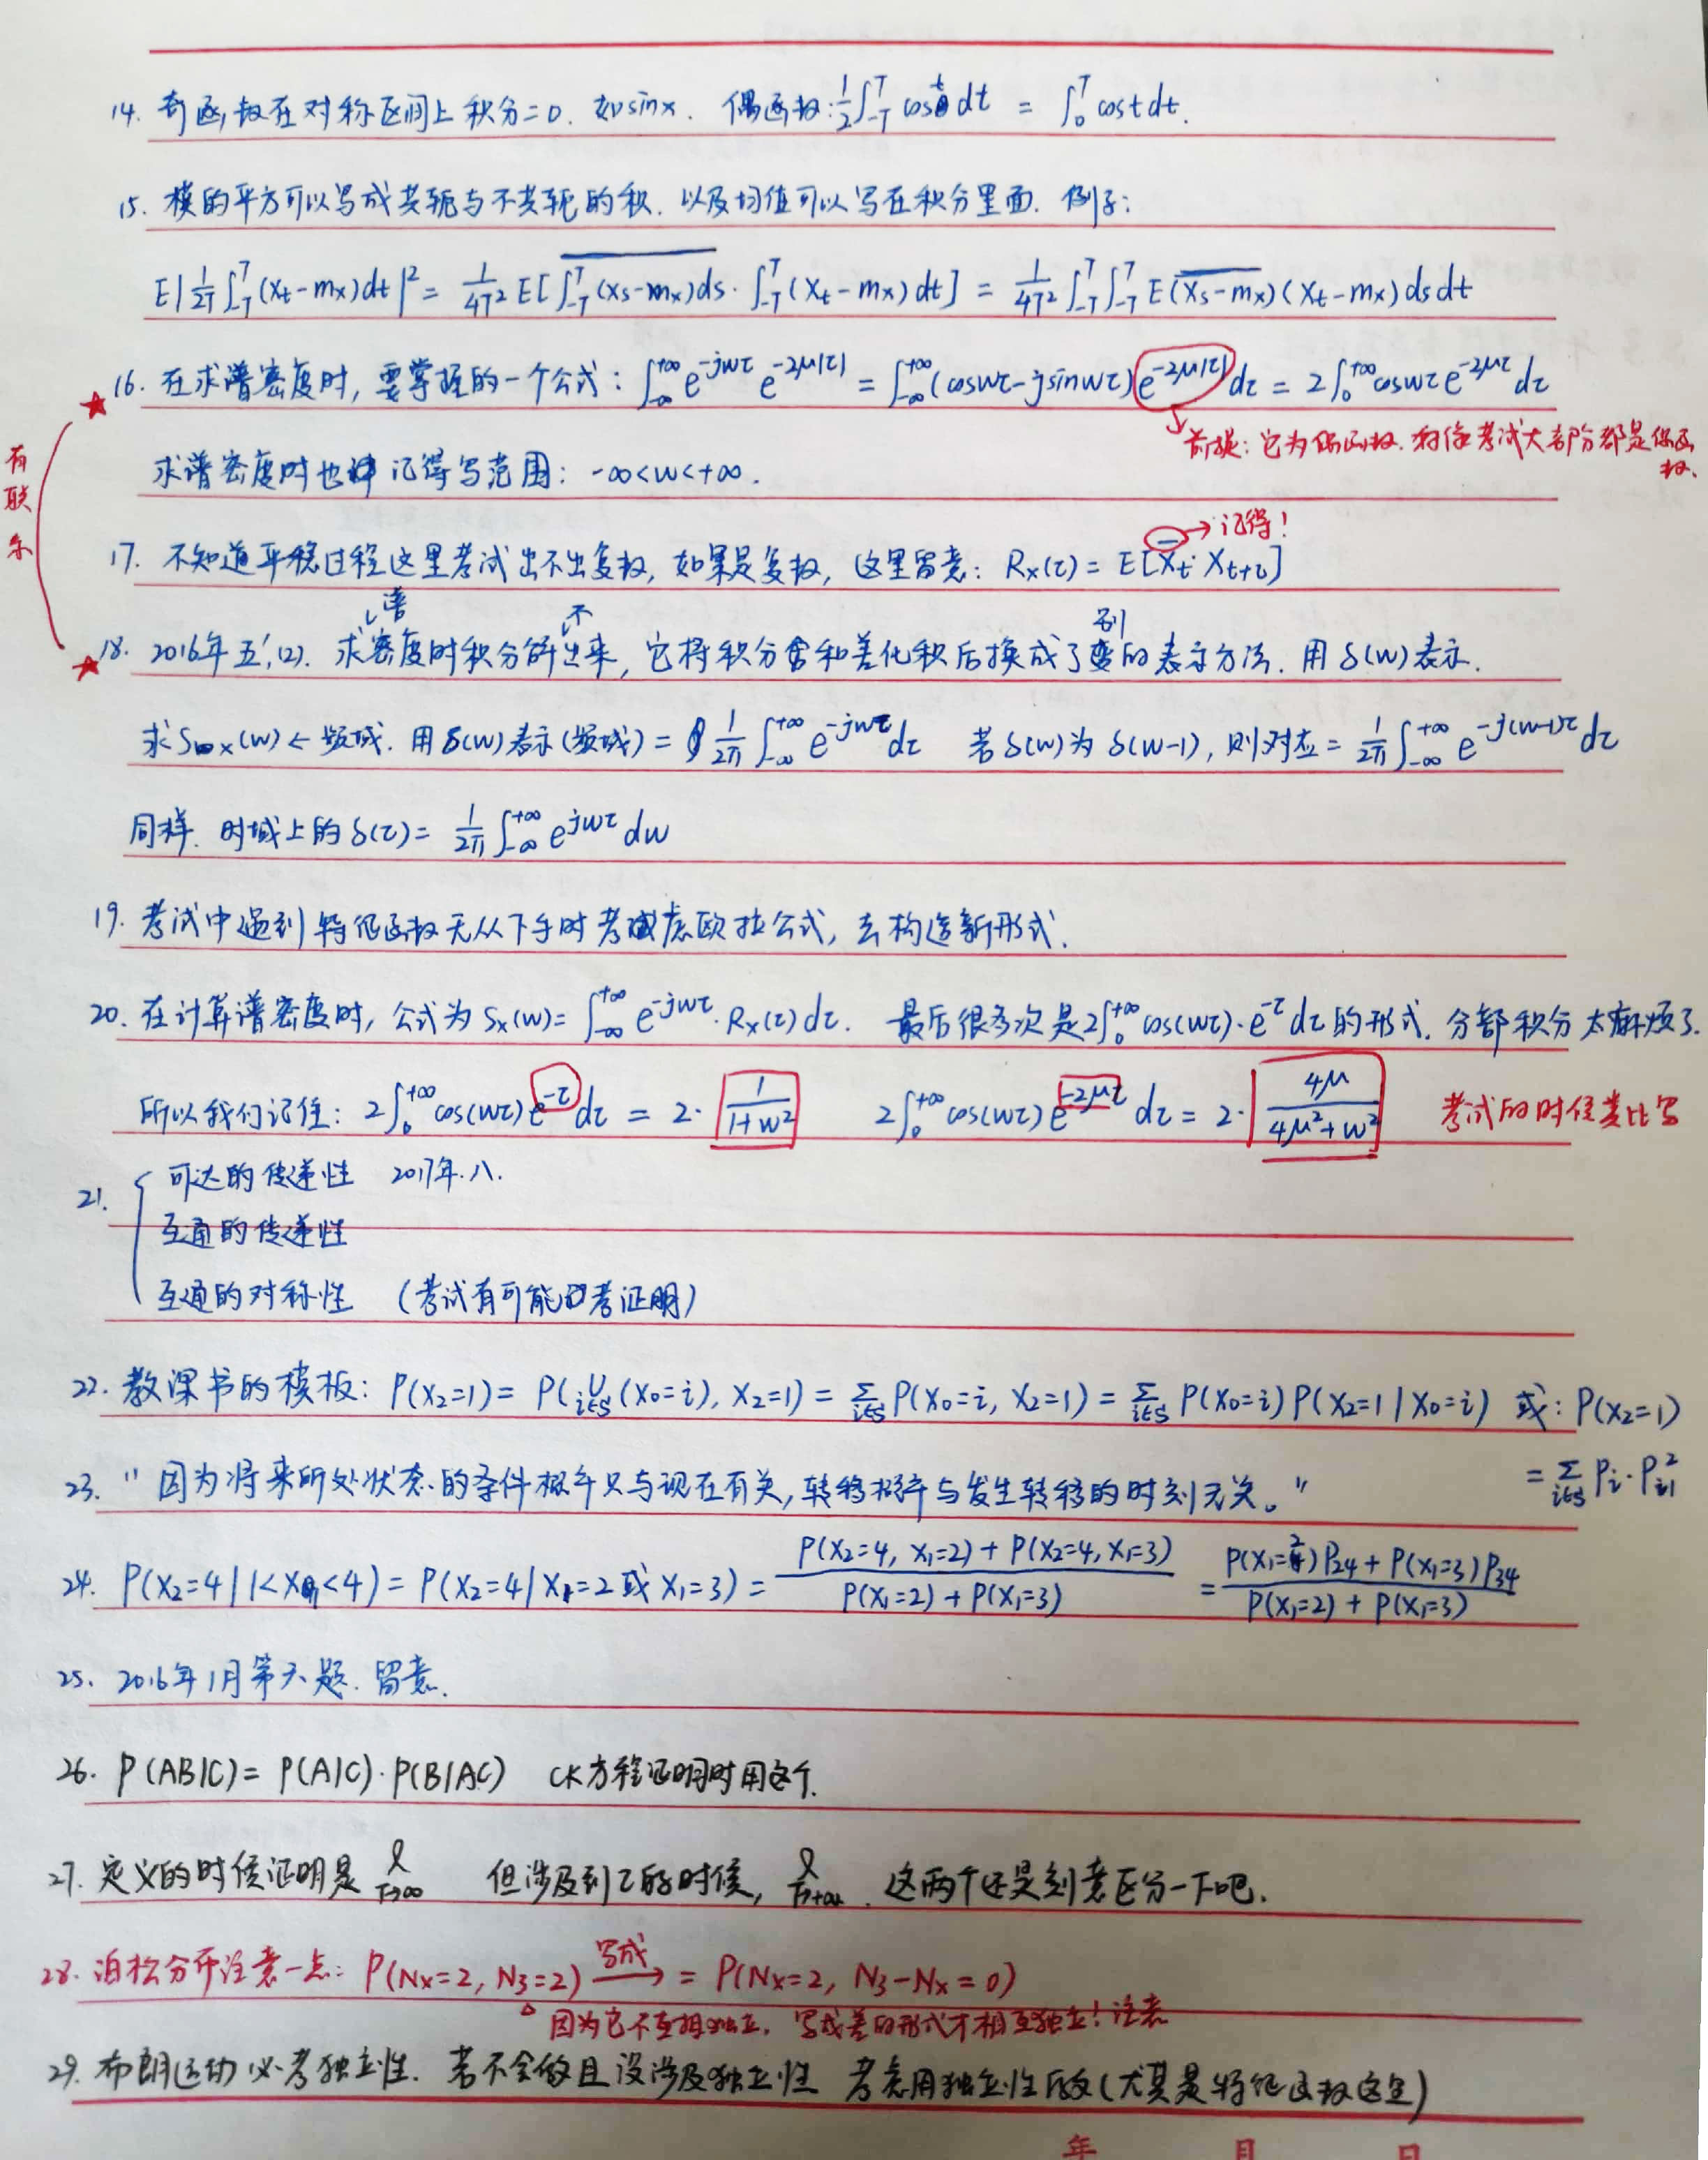 14. 奇函数在对称区间上积分=0. 如sinx. 偶函数: 1/2∫_{-T}^{T} cost dt = ∫_0^T cost dt.
15. 模的平方可以写成共轭与不共轭的积. 以及均值可以写在积分里面. 例子:
E|1/2T ∫_{-T}^{T}(Xt-mx)dt|² = 1/4T² E[\overline{∫_{-T}^{T}(Xs-mx)ds}·∫_{-T}^{T}(Xt-mx)dt] = 1/4T² ∫_{-T}^{T}∫_{-T}^{T} E(\overline{Xs-mx})(Xt-mx)dsdt
★16. 在求谱密度时, 要掌握的一个公式: ∫_{-∞}^{+∞} e^{-jwτ} e^{-2μ|τ|} = ∫_{-∞}^{+∞}(coswτ-jsinwτ)e^{-2μ|τ|}dτ = 2∫_0^{+∞}coswτ e^{-2μτ}dτ
前提: 它为偶函数. 考试大部分都是偶函数.
有联系
求谱密度时也 记得写范围: -∞<w<+∞.
→记得!
17. 不知道平稳过程这里考试出不出复数, 如果是复数, 这里留意: Rx(τ)= E[\overline{Xt}·X_{t+τ}]
★18. 2016年五,(2). 求谱密度时积分解不出来, 它将积分含和差化积后换成了别的表示方法. 用δ(w)表示.
求Sx(w)←频域. 用δ(w)表示(频域)= 1/2π ∫_{-∞}^{+∞} e^{-jwτ}dτ 若δ(w)为δ(w-1), 则对应= 1/2π ∫_{-∞}^{+∞} e^{-j(w-1)τ}dτ
同样. 时域上的δ(τ)= 1/2π ∫_{-∞}^{+∞} e^{jwτ}dw
19. 考试中遇到特征函数无从下手时考虑欧拉公式, 去构造新形式.
20. 在计算谱密度时, 公式为Sx(w)= ∫_{-∞}^{+∞} e^{-jwτ}·Rx(τ)dτ. 最后很多次是2∫_0^{+∞}cos(wτ)·e^{-τ}dτ的形式. 分部积分太麻烦了.
所以我们记住: 2∫_0^{+∞}cos(wτ)e^{-τ}dτ = 2·1/(1+w²) 2∫_0^{+∞}cos(wτ)e^{-2μτ}dτ = 2·4μ/(4μ²+w²) 考试的时候类比写
21. { 可达的传递性 2017年.八.
互通的传递性
互通的对称性 (考试有可能考证明)
22. 教课书的模板: P(X2=1)= P(∪_{i∈S}(X0=i), X2=1)= Σ_{i∈S}P(X0=i, X2=1)= Σ_{i∈S}P(X0=i)P(X2=1|X0=i) 或: P(X2=1)
= Σ_{i∈S} Pi·P_{i1}²
23. "因为将来所处状态的条件概率只与现在有关, 转移概率与发生转移的时刻无关。"
24. P(X2=4|1<X1<4)= P(X2=4|X1=2或X1=3)= [P(X2=4, X1=2)+P(X2=4, X1=3)]/[P(X1=2)+P(X1=3)] = [P(X1=2)P24+P(X1=3)P34]/[P(X1=2)+P(X1=3)]
25. 2016年1月第六题. 留意.
26. P(AB|C)= P(A|C)·P(B|AC) CK方程证明时用这个.
27. 定义的时候证明是 T→∞ 但涉及到τ的时候, T→+∞. 这两个还是刻意区分一下吧.
28. 泊松分布注意一点: P(Nx=2, N3=2) 写成→ = P(Nx=2, N3-Nx=0)
因为它不互相独立, 写成差的形式才相互独立! 注意
29. 布朗运动必考独立性. 若不会做且没涉及独立性 考虑用独立性 (尤其是特征函数这里)
年 月 日